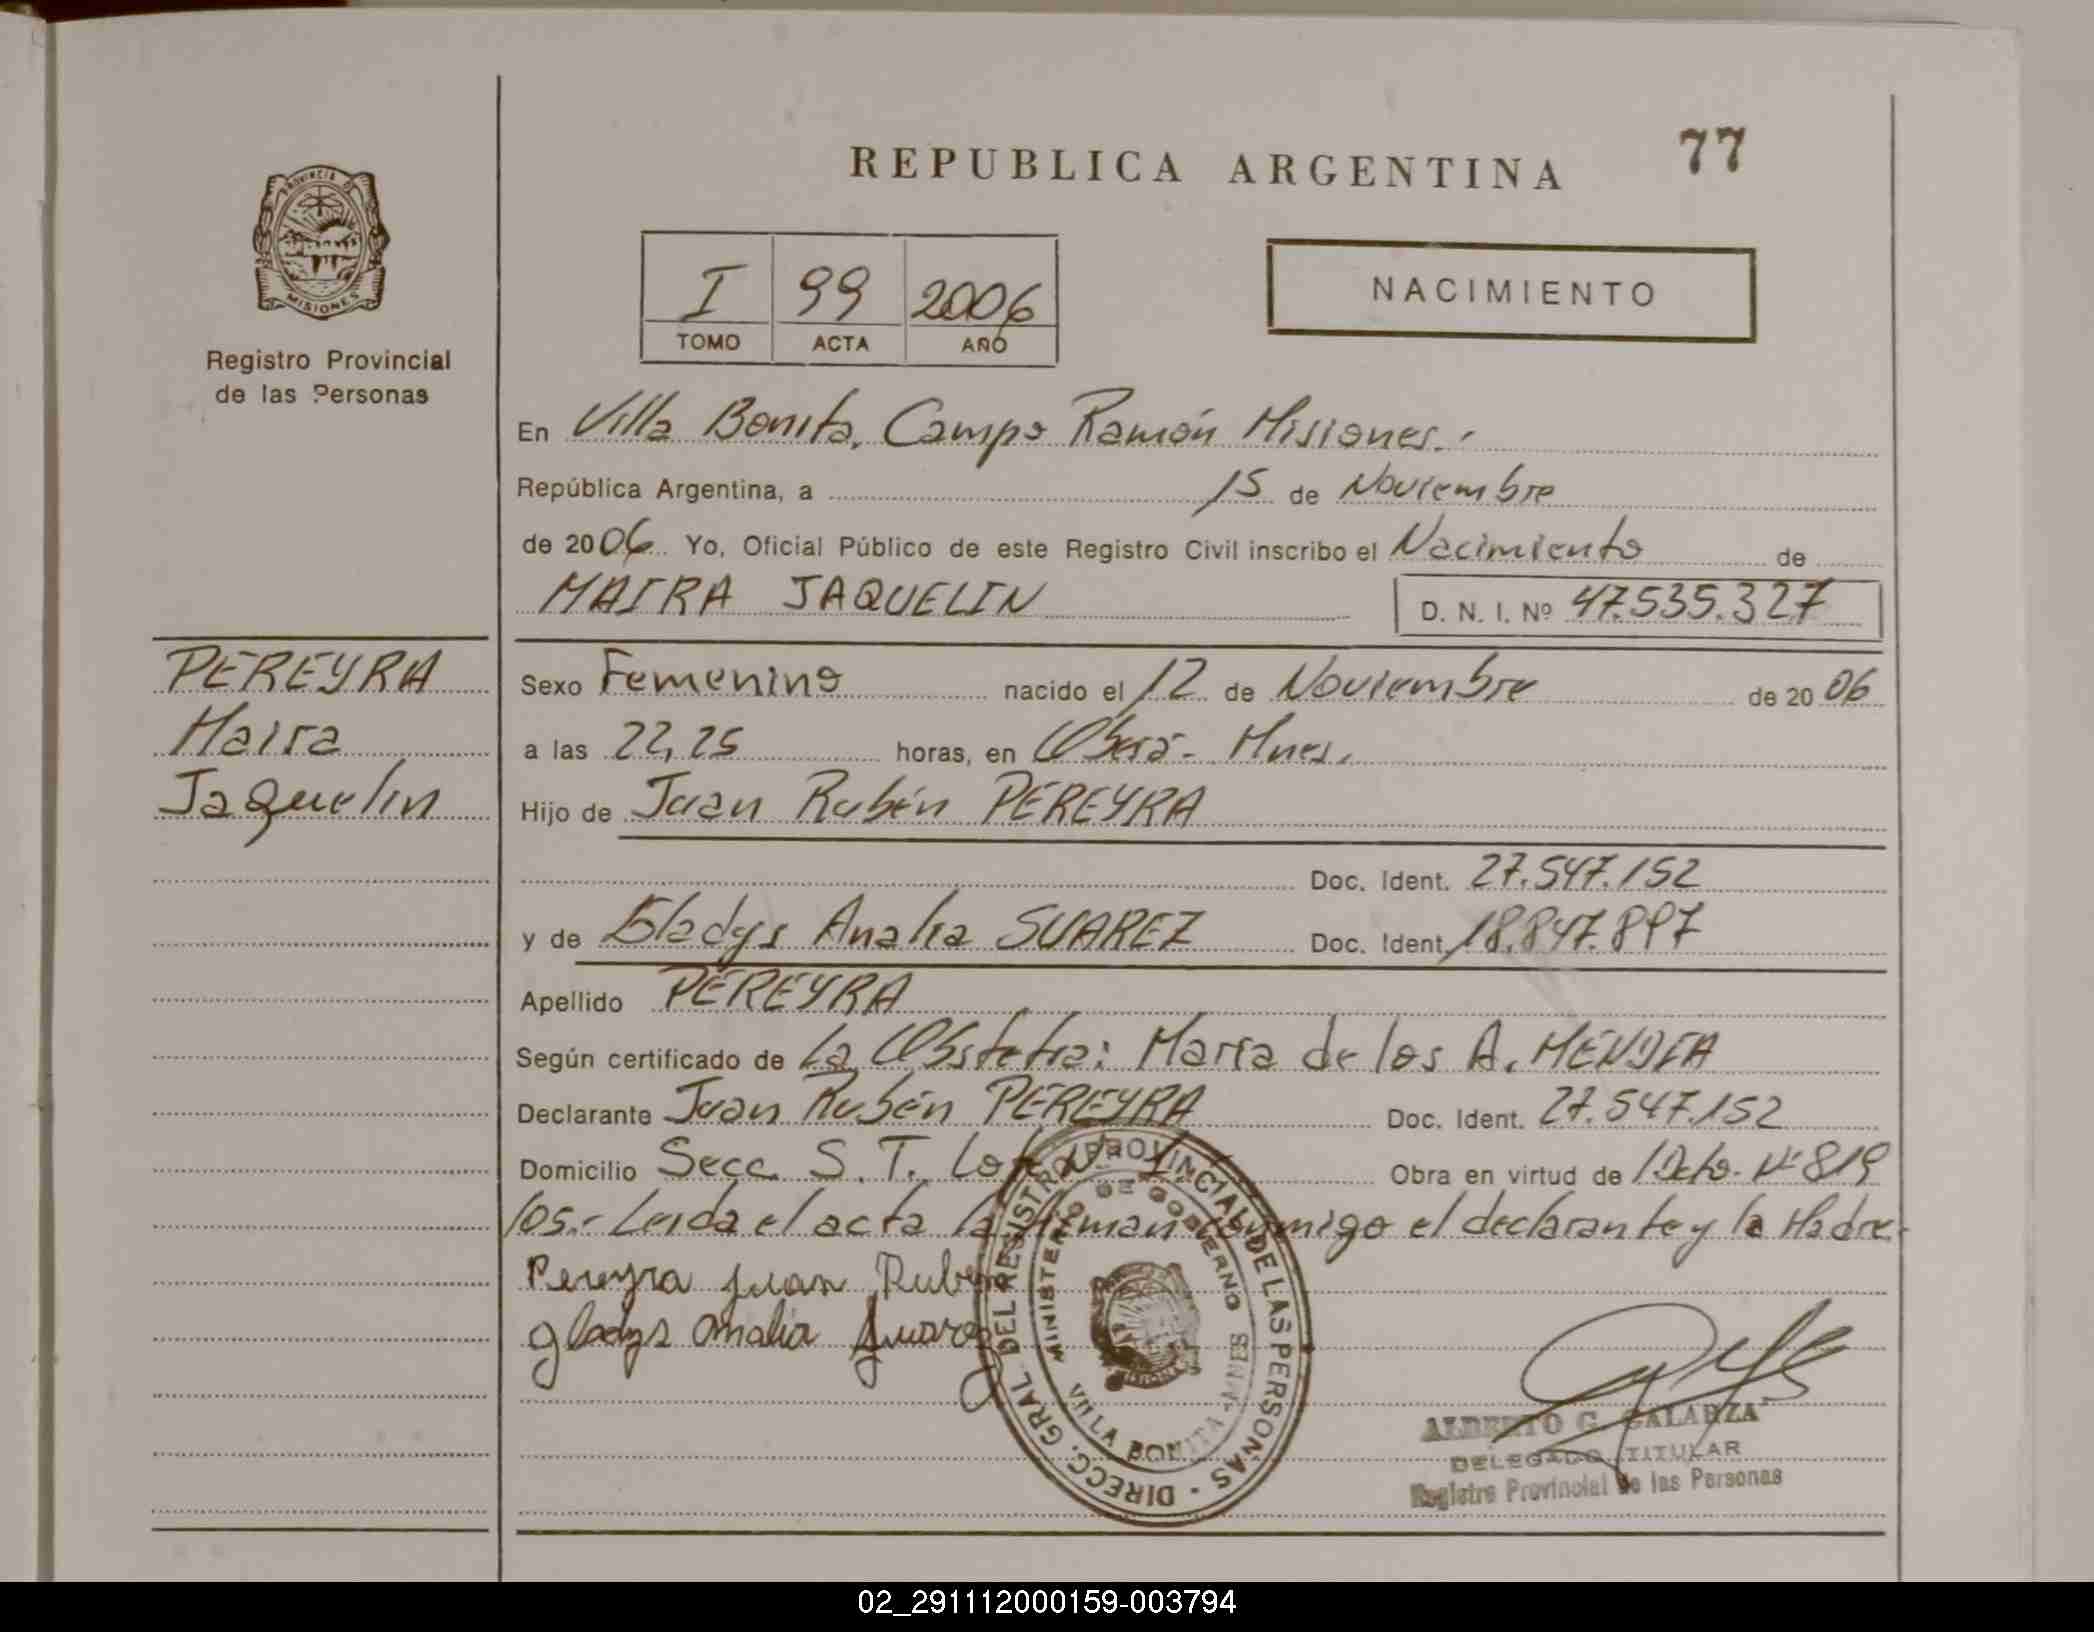 REPUBLICA ARGENTINA
77
PROVINCIA DE
MISIONES
Registro Provincial
de las Personas
I 99 2006
TOMO ACTA AÑO
NACIMIENTO
En Villa Bonita, Campo Ramón Misiones.-
República Argentina, a 15 de Noviembre
de 2006 Yo, Oficial Público de este Registro Civil inscribo el Nacimiento de
MAIRA JAQUELIN D. N. I. Nº 47.535.327
PEREYRA
Maira
Jaquelin
Sexo Femenino nacido el 12 de Noviembre de 2006
a las 22,25 horas, en Oberá - Mnes.
Hijo de Juan Rubén PEREYRA
Doc. Ident. 27.547.152
y de Gladys Analia SUAREZ Doc. Ident. 18.847.897
Apellido PEREYRA
Según certificado de La Obstetra: María de los A.
Declarante Juan Rubén PEREYRA Doc. Ident. 27.547.152
Domicilio Secc. S. T. Obra en virtud de Dcto. Nº 819
/05.- Leida el acta la firman conmigo el declarante y la Madre.-
Pereyra Juan Ruben
gladys analia Suarez
DIRECC. GRAL DEL REGISTRO PROVINCIAL DE LAS PERSONAS
MINISTERIO DE GOBIERNO
VILLA BONITA - MNES
ALBERTO G. GALARZA
DELEGADO TITULAR
Registro Provincial de las Personas
02_291112000159-003794